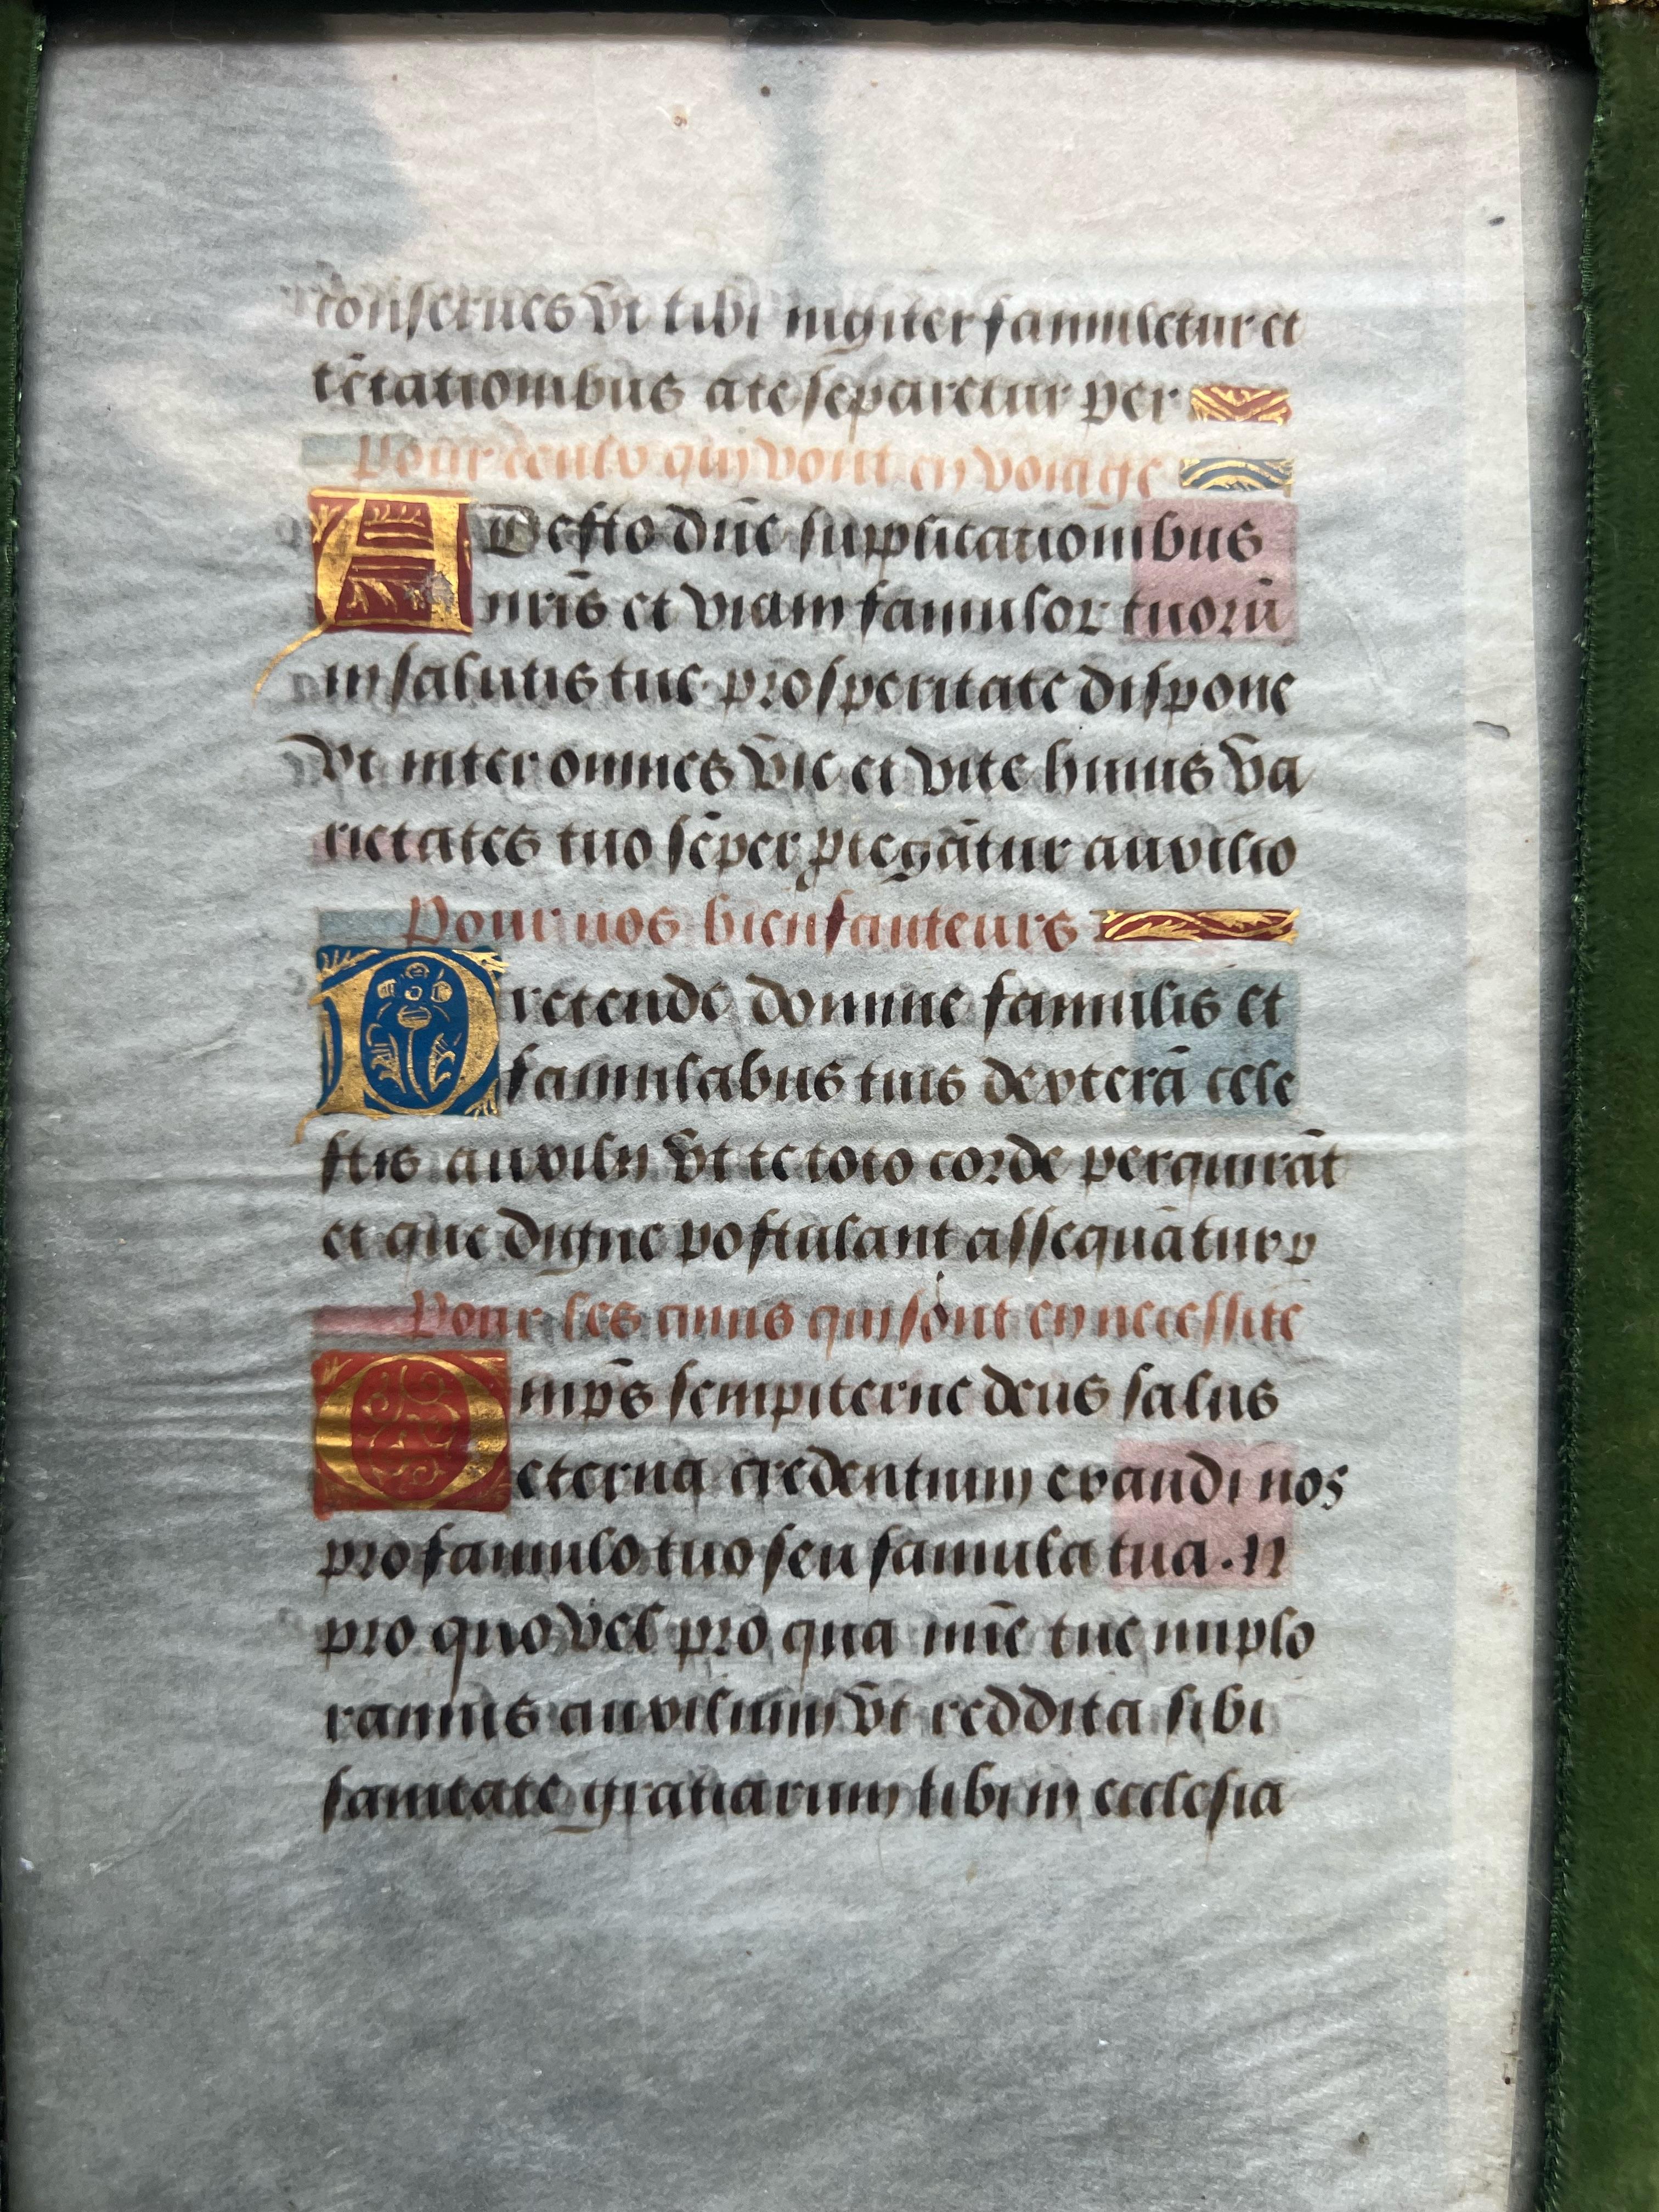 conserues vt tibi iugiter famuletur et
tētatiombus a te separetur per
Pour ceulx qui vont en voiage
Adesto dn̄e supplicationibus
nr̄is et viam famulor tuorū
in salutis tue prosperitate dispone
vt inter omnes vie et vite huius va
rietates tuo sēper ptegātur auxilio
Pour nos bienfaiteurs
Pretende domine famulis et
famulabus tuis dexterā cele
stis auxilii vt te toto corde perquirāt
et que digne postulant assequātur p
Pour les amis qui sont en necessite
Omps̄ sempiterne deus salus
eterna credentium exaudi nos
pro famulo tuo seu famula tua . N
pro quo vel pro qua mīe tue implo
ramus auxilium vt reddita sibi
sanitate gratiarum tibi in ecclesia